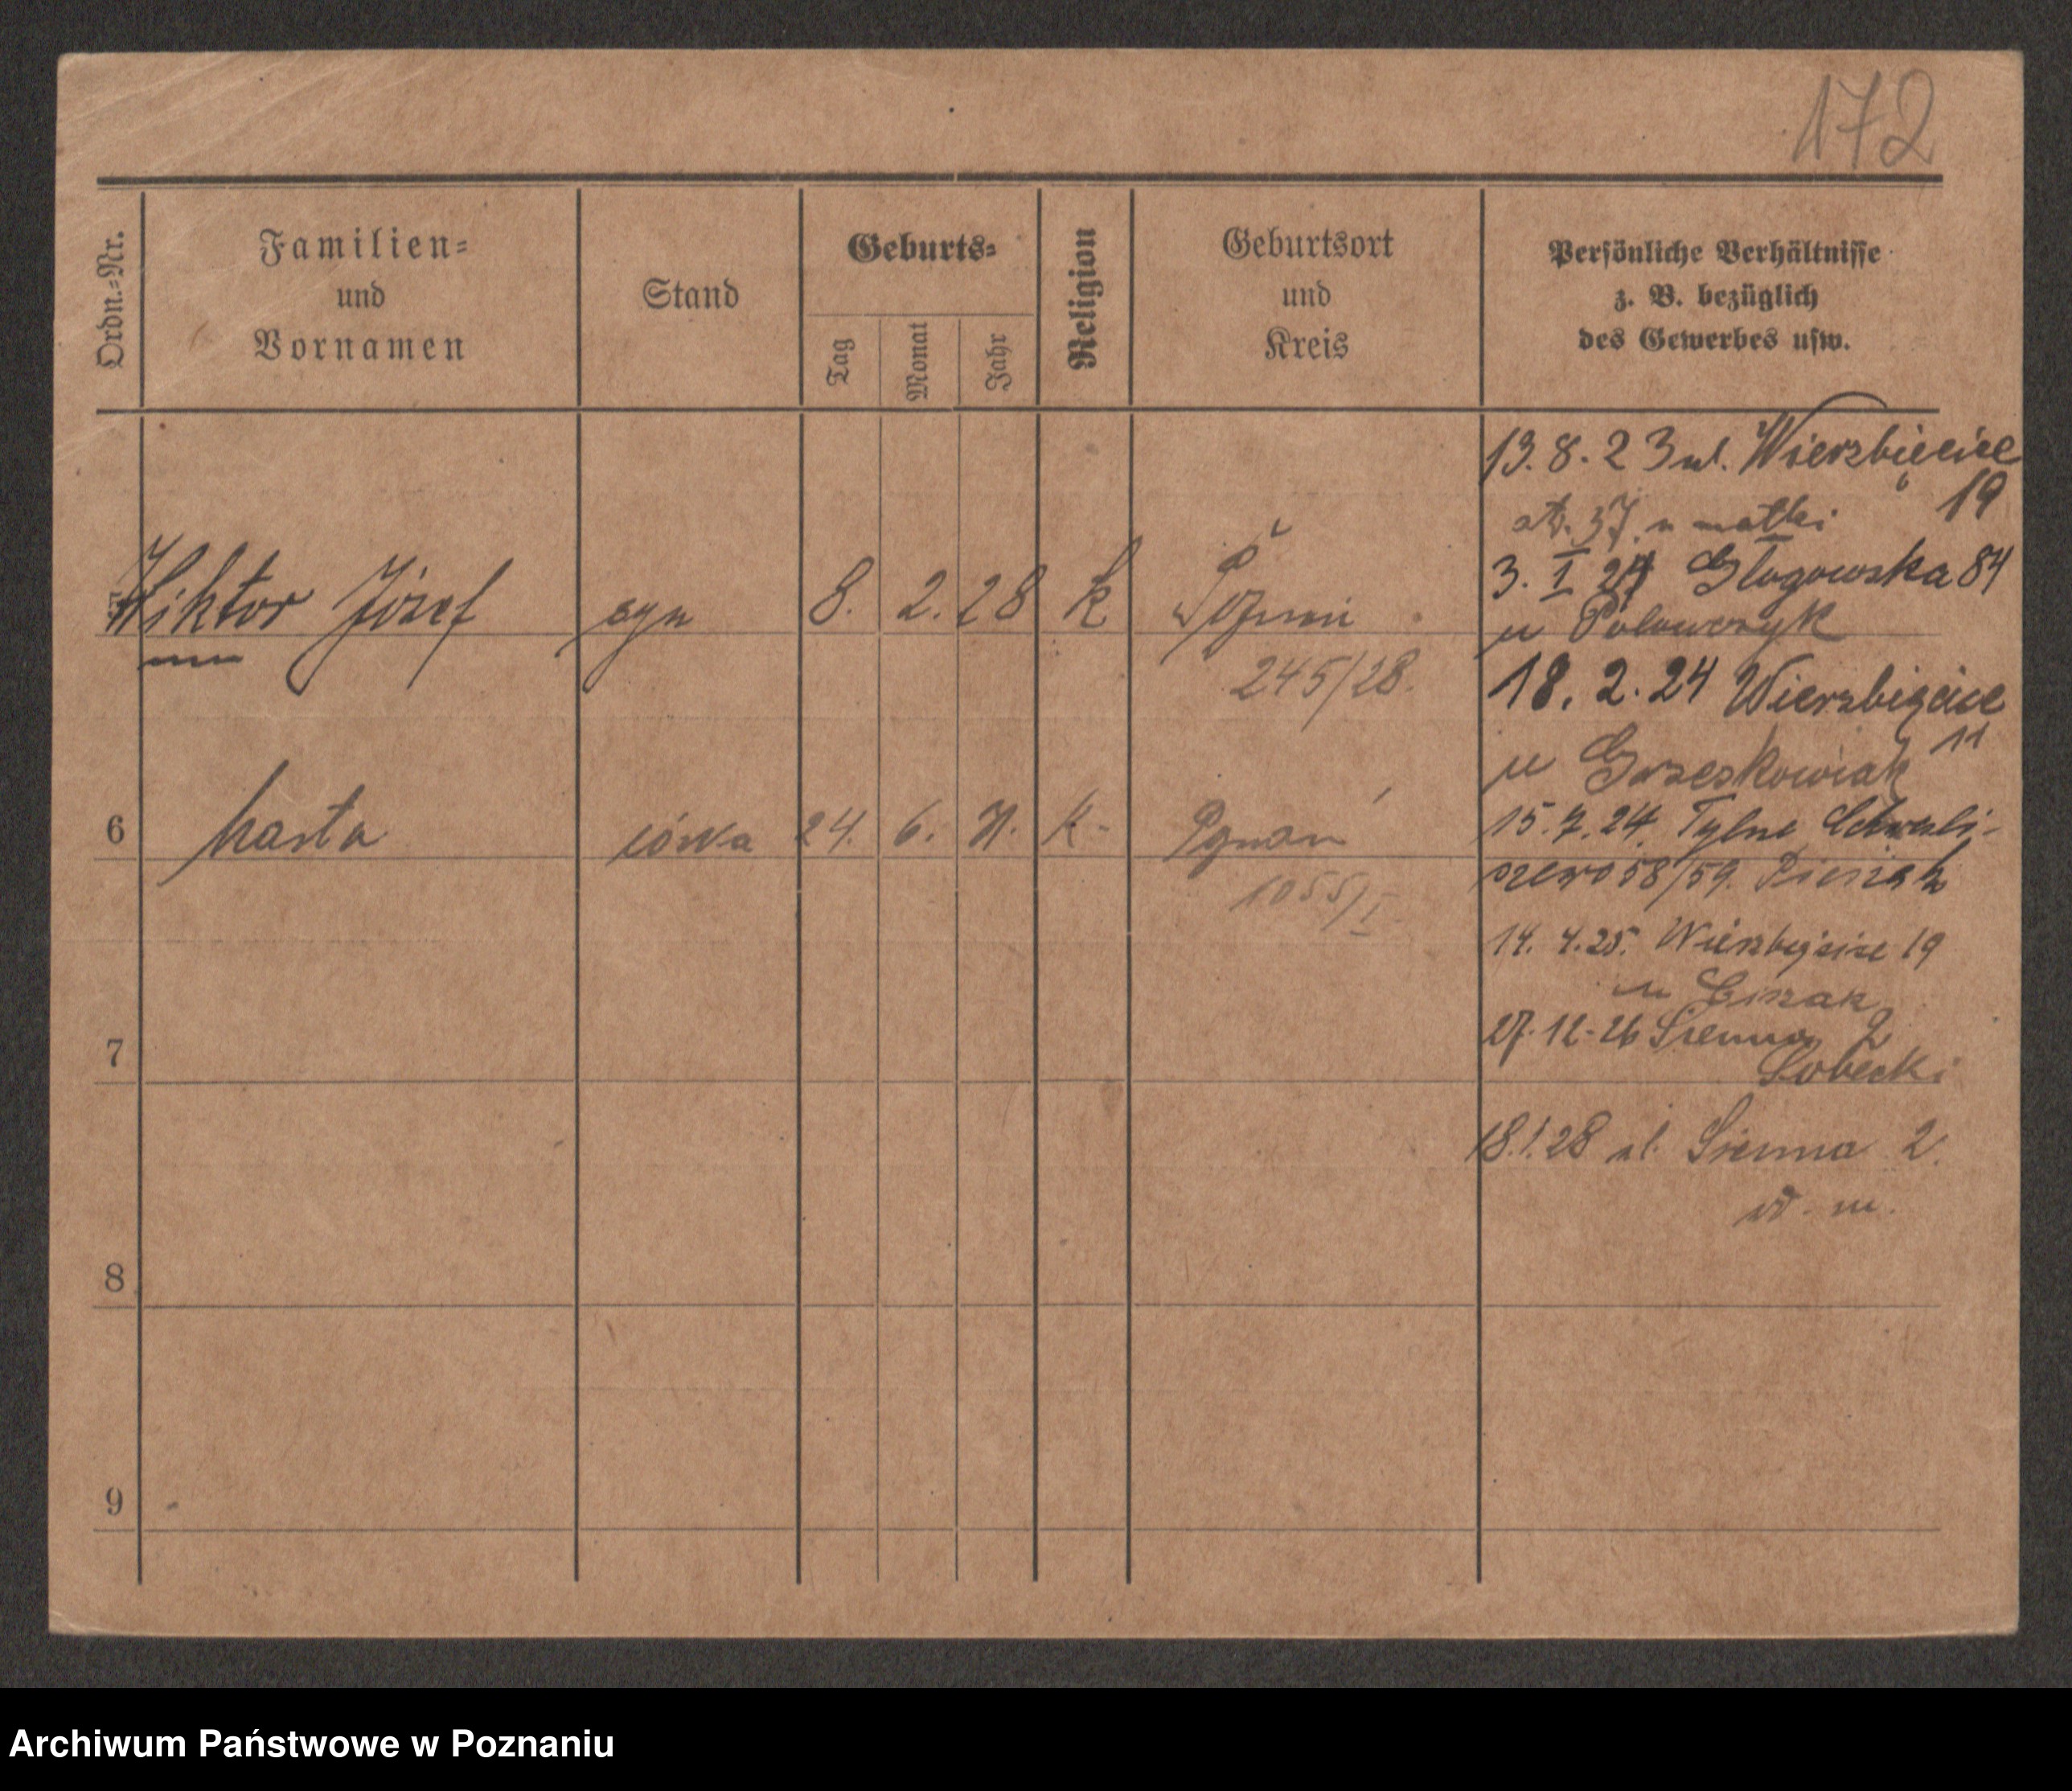 172
Ordn.=Nr.
Familien=
und
Vornamen
Stand
Geburts=
Tag
Monat
Jahr
Religion
Geburtsort
und
Kreis
Persönliche Verhältnisse
z. B. bezüglich
des Gewerbes usw.
5 Wiktor Józef syn 8. 2. 28 k
245/28.
6 Marta córka 24. 6. k- Poznań
1055/I
7
8
9
13.8.23 ul. Wierzbięcice
19
37. u matki
3. I 24 Głogowska 84
u Polowczyk
18. 2. 24 Wierzbięcice
11
u Grzeskowiak
15.7.24. Tylne Chwali-
szewo 58/59. Pieziak
14. 4.25. Wierzbięcice 19
u
27.12-26 Sienna 2
Sobecki
18.1.28 ul. Sienna 2.
w. m.
Archiwum Państwowe w Poznaniu